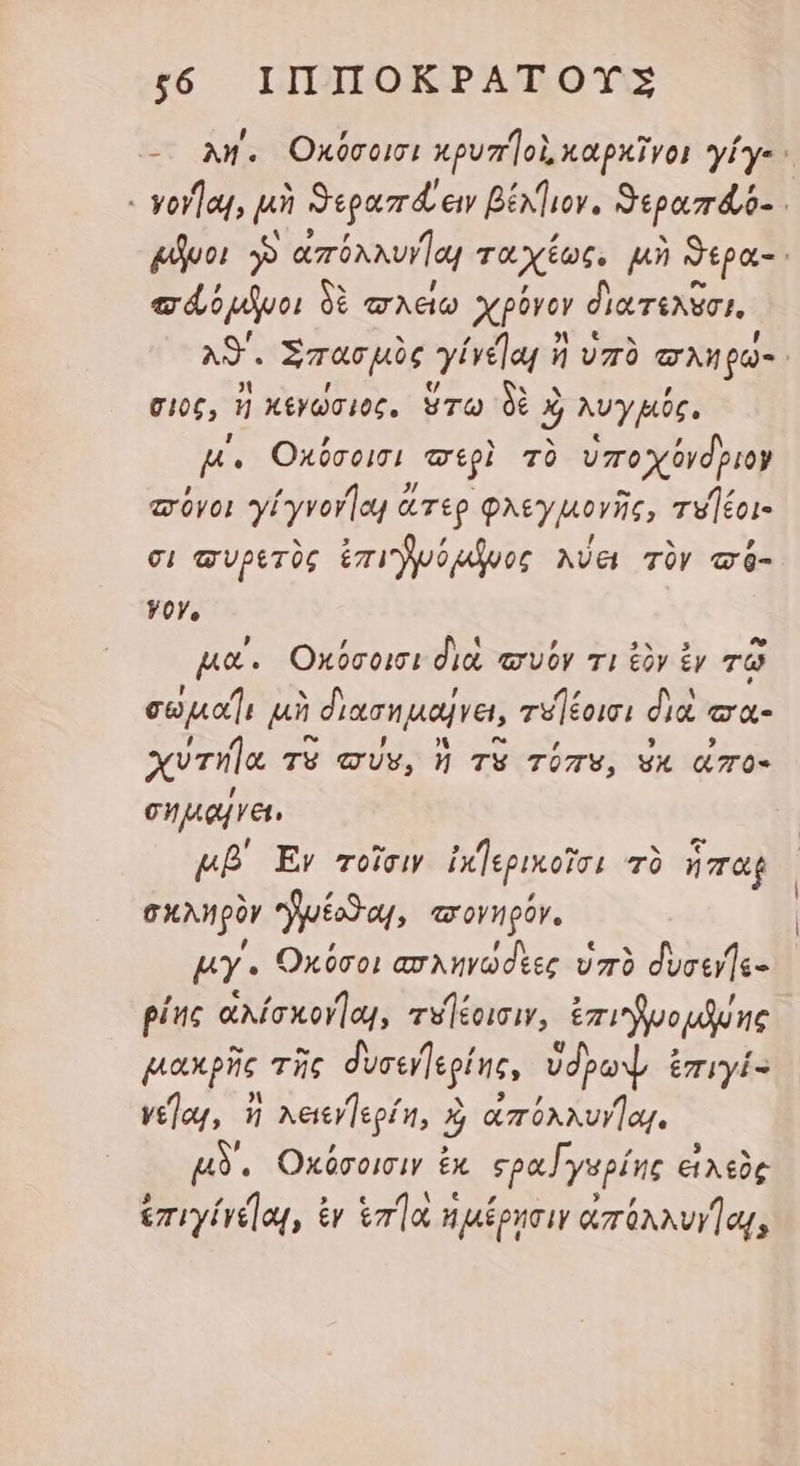 56 ΙΠΠΟΚΡΑΤΟΥΣ
λη΄. Οκόσοισι κρυπτοὶ καρκῖνοι γίγ-
νονται, μὴ θεραπεύειν βέλτιον. θεραπευό-
μενοι γὰρ ἀπόλλυνται ταχέως. μὴ θερα-
πευόμενοι δὲ πλείω χρόνον διατελοῦσι.
λθ΄. Σπασμὸς γίνεται ἢ ὑπὸ πληρώ-
σιος, ἢ κενώσιος. οὕτω δὲ καὶ λυγμός.
μ΄. Οκόσοισι περὶ τὸ ὑποχόνδριον
πόνοι γίγνονται ἄτερ φλεγμονῆς, τουτέοι-
σι πυρετὸς ἐπιγενόμενος λύει τὸν πό-
νον.
μα΄. Οκόσοισι διὰ πυόν τι ἐὸν ἐν τῷ
σώματι μὴ διασημαίνει, τουτέοισι διὰ πα-
χύτητα τοῦ πύου, ἢ τοῦ τόπου, οὐκ ἀπο-
σημαίνει.
μβ΄ Εν τοῖσιν ἰκτερικοῖσι τὸ ἧπαρ
σκληρὸν γενέσθαι, πονηρόν.
μγ΄. Οκόσοι σπληνώδεες ὑπὸ δυσεντε-
ρίης ἁλίσκονται, τουτέοισιν, ἐπιγενομένης
μακρῆς τῆς δυσεντερίης, ὕδρωψ ἐπιγί-
νεται, ἢ λειεντερίη, καὶ ἀπόλλυνται.
μδ΄. Οκόσοισιν ἐκ στραγγουρίης εἰλεὸς
ἐπιγίνεται, ἐν ἑπτὰ ἡμέρῃσιν ἀπόλλυνται,